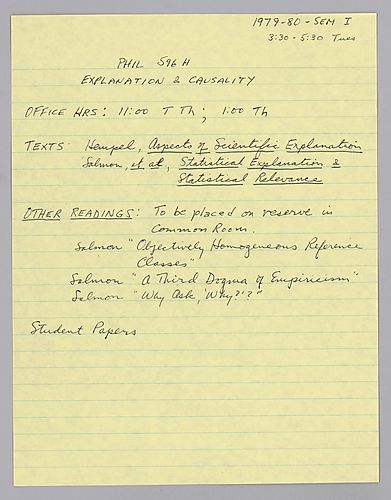 1979-80 - SEM I
3:30 - 5:30 Tues
PHIL 596 H
EXPLANATION & CAUSALITY
OFFICE HRS: 11:00 T Th; 1:00 Th
TEXTS: Hempel, Aspects of Scientific Explanation
Salmon, et al, Statistical Explanation &
Statistical Relevance
OTHER READINGS: To be placed on reserve in
Common Room.
Salmon "Objectively Homogeneous Reference
Classes"
Salmon "A Third Dogma of Empiricism"
Salmon "Why Ask, 'Why?'?"
Student Papers